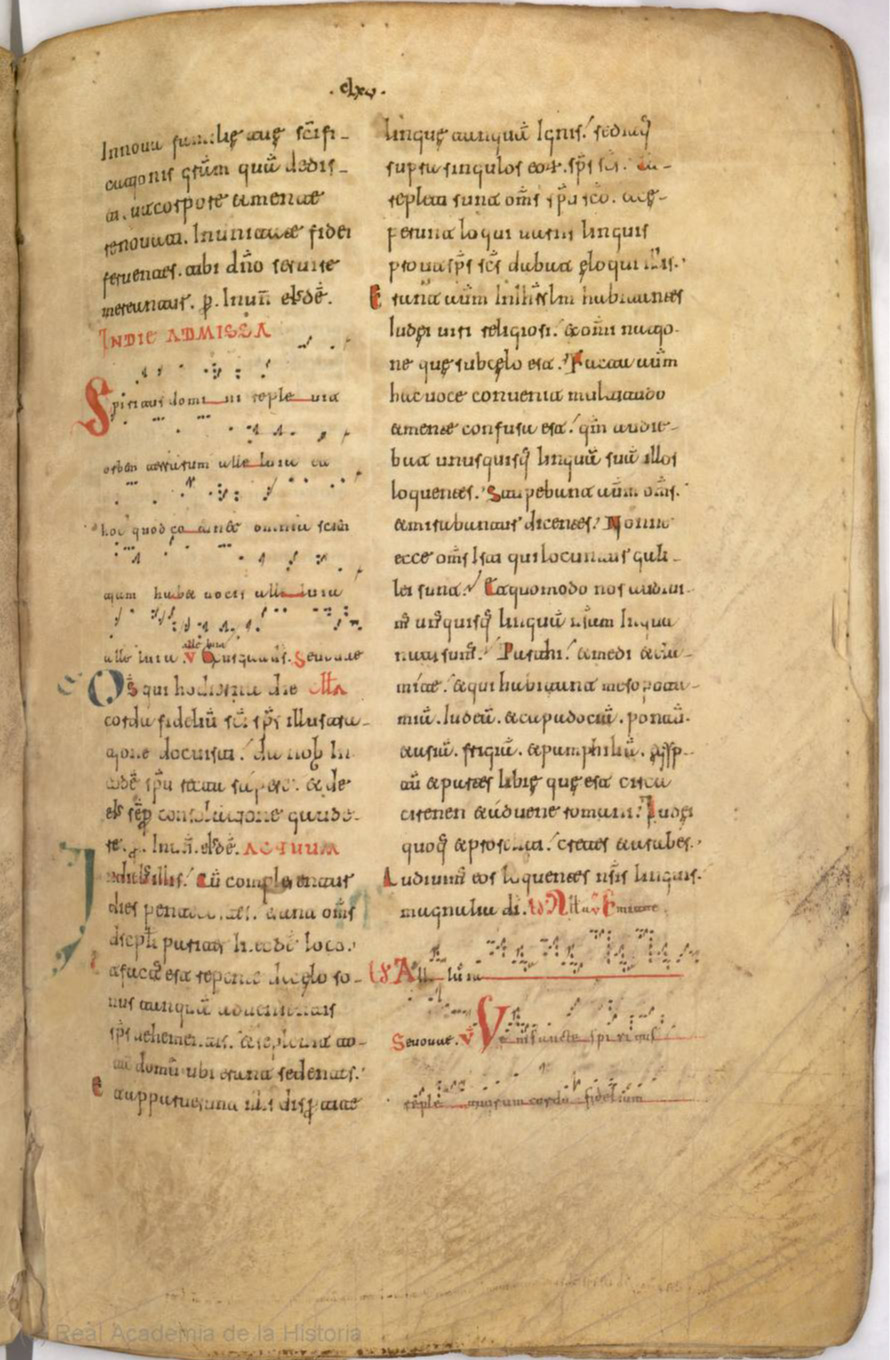 .clxv.
In nova familię tuę sc̄ifi-
cationis gr̄am quā dedis-
ti. ut corpore et mente
renovati. In unitate fidei
ferventes. tibi dn̄o servire
mereantur. p. In un̄ eiusdē.
IN DIE AD MISSA
Spiritus domini replevit
orbem terrarum alleluia et
hoc quod continet omnia scien
tiam habet vocis alleluia
alleluia V Seuouae
Ds̄ qui hodierna die Cll̄a
corda fideliū sc̄i sp̄s illustra-
tione docuisti. da nob In
eodē sp̄u recta sapere. et de
eius sēp consolatione gaude-
re. p. In un̄. eiusdē. ACTUUM
In dieb; illis. Cū complerentur
dies pentecostes. erant om̄s
discipl̄i pariter in eodē loco.
et factus est repente de cęlo so-
nus tanquā advenientis
sp̄s vehementis. et replevit to-
tā domū ubi erant sedentes.
Et apparuerunt illis dispertitę
linguę tanquā Ignis. seditq;
supra singulos eor. sp̄s sc̄s. Et
repleti sunt om̄s sp̄u sc̄o. et cę-
perunt loqui variis linguis
prout sp̄s sc̄s dabat eloqui illis.
Erant aūm In hierslm habitantes
Iudęi viri religiosi. et om̄i natio-
ne quę sub cęlo est. Facta aūm
hac voce convenit multitudo
et mente confusa est. qm̄ audie-
bat unusquisq; linguā suā illos
loquentes. Stupebant aūm om̄s.
et mirabantur dicentes. Nonne
ecce om̄s Isti qui locuntur gali-
lei sunt. Et quomodo nos audivi-
m̄ un̄quisq; linguā n̄ram In qua
nati sum̄. Parthi. et medi et ęla-
mitę. et qui habitant mesopota-
miā. Iudeā. et capadociā. pontū.
et asiā. frigiā. et pamphiliā. egyp-
tū et partes libię que est circa
cirenen et advene romani. Iudęi
quoq; et proseliti. cretes et arabes.
Audivim̄ eos loquentes n̄ris linguis.
magnalia di. All̄a V Emitte
Alleluia
Seuouae. V Veni sancte spiritus
reple tuorum corda fidelium